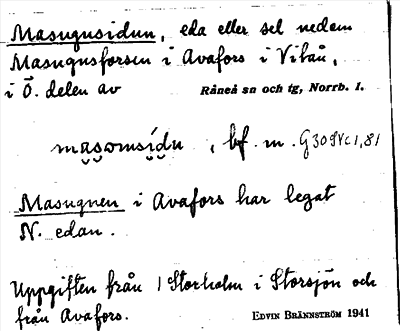 Masugnsidun, eda eller sel nedom
Masugnsforsen i Avafors i Vitån,
i Ö. delen av Råneå sn och tg, Norrb. l.
mas̯omsídu̯, bf. m. G309Vc1,81
Masugnen i Avafors har legat
N. edan.
Uppgiften från 1 Storholm i Storsjön och
från Avafors. EDVIN BRÄNNSTRÖM 1941